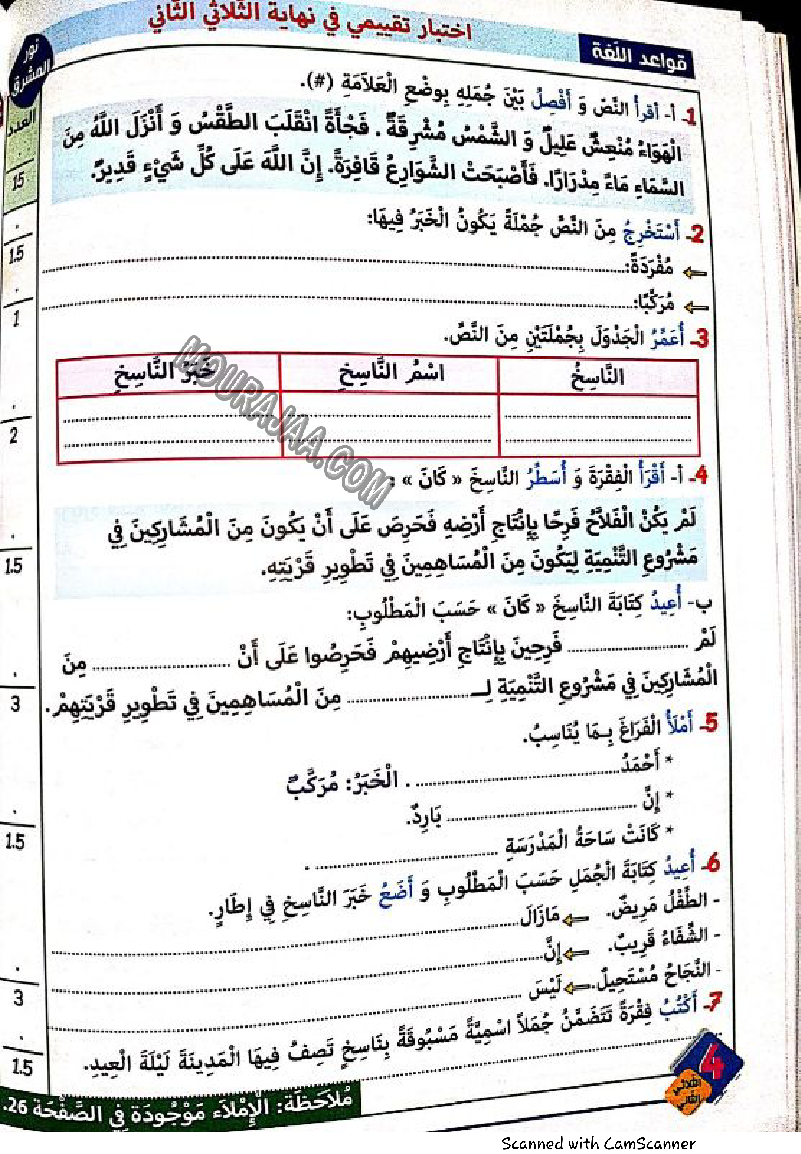 اختبار تقييمي في نهاية الثلاثي الثاني
قواعد اللغة
نور المشرق
العدد
15
1- أ- أَقْرَأُ النَّصَّ وَ أَفْصِلُ بَيْنَ جُمَلِهِ بِوضْعِ الْعَلاَمَةِ (#).
الْهَوَاءُ مُنْعِشٌ عَلِيلٌ وَ الشَّمْسُ مُشْرِقَةٌ . فَجْأَةً انْقَلَبَ الطَّقْسُ وَ أَنْزَلَ اللَّهُ مِنَ
السَّمَاءِ مَاءً مِدْرَارًا. فَأَصْبَحَتْ الشَّوَارِعُ قَافِرَةً. إِنَّ اللَّهَ عَلَى كُلِّ شَيْءٍ قَدِيرٌ.
1.5
2- أَسْتَخْرِجُ مِنَ النَّصِّ جُمْلَةً يَكُونُ الْخَبَرُ فِيهَا:
مُفْرَدَةً:
مُرَكَّبًا:
1
3- أُعَمِّرُ الْجَدْوَلَ بِجُمْلَتَيْنِ مِنَ النَّصِّ.
النَّاسِخُ اسْمُ النَّاسِخِ خَبَرُ النَّاسِخِ
2
4- أ- أَقْرَأُ الْفِقْرَةَ وَ أُسَطِّرُ النَّاسِخَ « كَانَ » :
لَمْ يَكُنْ الْفَلاَّحُ فَرِحًا بِإِنْتَاجِ أَرْضِهِ فَحَرِصَ عَلَى أَنْ يَكُونَ مِنَ الْمُشَارِكِينَ فِي
مَشْرُوعِ التَّنْمِيَةِ لِيَكُونَ مِنَ الْمُسَاهِمِينَ فِي تَطْوِيرِ قَرْيَتِهِ.
1.5
ب- أُعِيدُ كِتَابَةَ النَّاسِخَ « كَانَ » حَسَبَ الْمَطْلُوبِ:
لَمْ ........ فَرِحِينَ بِإِنْتَاجِ أَرْضِيهِمْ فَحَرِصُوا عَلَى أَنْ ........ مِنَ
الْمُشَارِكِينَ فِي مَشْرُوعِ التَّنْمِيَةِ لِـ ........ مِنَ الْمُسَاهِمِينَ فِي تَطْوِيرِ قَرْيَتِهِمْ.
3
5- أَمْلَأُ الْفَرَاغَ بِمَا يُنَاسِبُ.
* أَحْمَدُ ........ . الْخَبَرُ: مُرَكَّبٌ
* إِنَّ ........ بَارِدٌ.
* كَانَتْ سَاحَةُ الْمَدْرَسَةِ ........ .
1.5
6- أُعِيدُ كِتَابَةَ الْجُمَلِ حَسَبَ الْمَطْلُوبِ وَ أَضَعُ خَبَرَ النَّاسِخِ فِي إِطَارٍ.
- الطِّفْلُ مَرِيضٌ. مَازَالَ
- الشِّفَاءُ قَرِيبٌ. إِنَّ
- النَّجَاحُ مُسْتَحِيلٌ. لَيْسَ
3
7- أَكْتُبُ فِقْرَةً تَتَضَمَّنُ جُمَلاً اسْمِيَّةً مَسْبُوقَةً بِنَاسِخٍ تَصِفُ فِيهَا الْمَدِينَةَ لَيْلَةَ الْعِيدِ.
1.5
4
الثلاثي الثاني
مُلاَحَظَة: الْإِمْلاَء مَوْجُودَة فِي الصَّفْحَة 26.
MOURAJAA.COM
Scanned with CamScanner